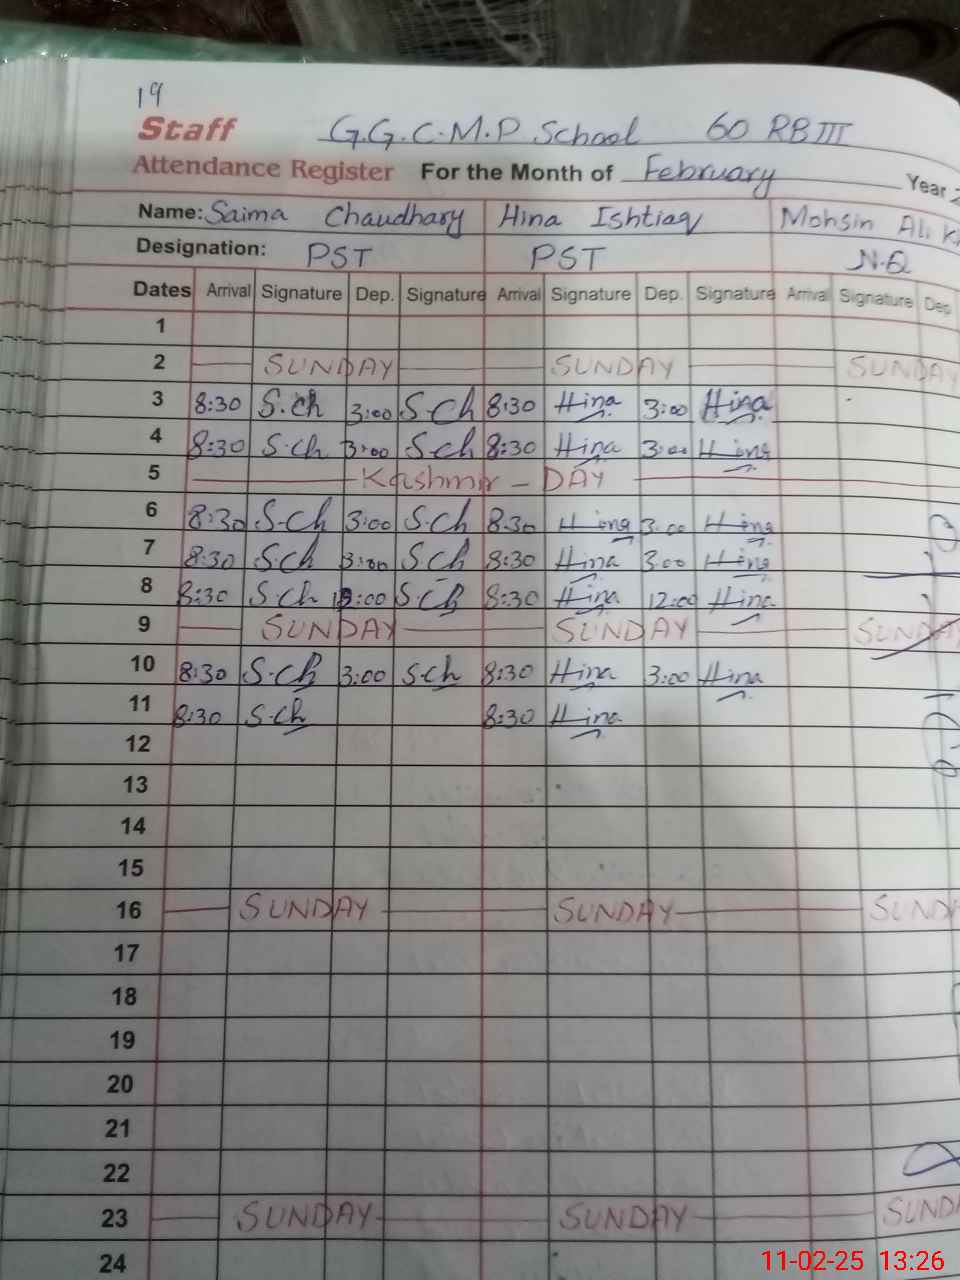 19
Staff G.G.C.M.P School 60 RB III
Attendance Register For the Month of February Year
Name: Saima Chaudhary Hina Ishtiaq Mohsin Ali
Designation: PST PST N.Q
Dates Arrival Signature Dep. Signature Arrival Signature Dep. Signature Arrival Signature Dep
1
2 SUNDAY SUNDAY SUNDAY
3 8:30 S.ch 3:00 S-ch 8:30 Hina 3:00 Hina
4 8:30 S.ch 3:00 S.ch 8:30 Hina 3:00 Hina
5 Kashmir - DAY
6 8:30 S-ch 3:00 S.ch 8:30 Hina 3:00 Hina
7 8:30 S.ch 3:00 S.ch 8:30 Hina 3:00 Hina
8 8:30 S.ch 12:00 S.ch 8:30 Hina 12:00 Hina
9 SUNDAY SUNDAY SUNDAY
10 8:30 S.ch 3:00 S.ch 8:30 Hina 3:00 Hina
11 8:30 S.ch 8:30 Hina
12
13
14
15
16 SUNDAY SUNDAY SUND
17
18
19
20
21
22
23 SUNDAY SUNDAY SUND
24
11-02-25 13:26